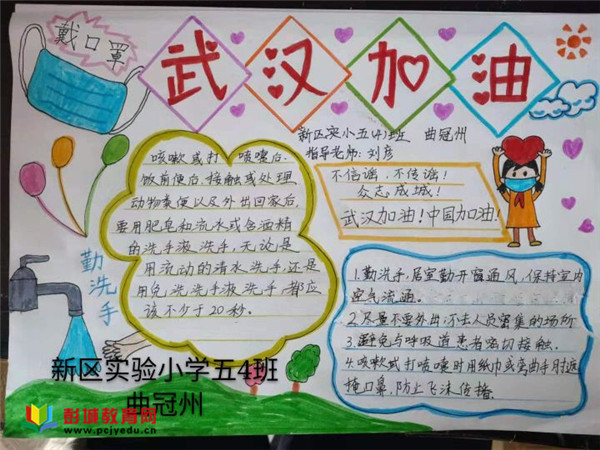 戴口罩
武汉加油
新区实小五4班 曲冠州
指导老师:刘彦
咳嗽或打喷嚏后、
饭前便后、接触或处理
动物粪便以及外出回家后,
要用肥皂和流水或含酒精
的洗手液洗手,无论是
用流动的清水洗手,还是
用免洗洗手液洗手,都应
该不少于20秒。
不信谣,不传谣!
众志成城!
武汉加油!中国加油!
勤洗手
1.勤洗手,居室勤开窗通风,保持室内
空气流通。
2.尽量不要外出,不去人员密集的场所
3.避免与呼吸道患者密切接触。
4.咳嗽或打喷嚏时用纸巾或弯曲手肘
掩口鼻,防止飞沫传播。
新区实验小学五4班
曲冠州
彭城教育网
www.pcjyedu.cn